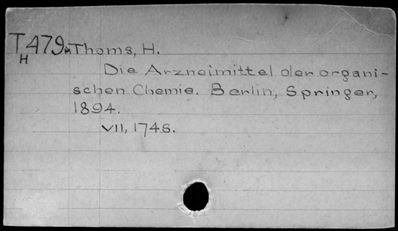 T479a Thoms, H.
H
Die Arzneimittel der organi-
schen Chemie. Berlin, Springer,
1894.
VII, 174S.